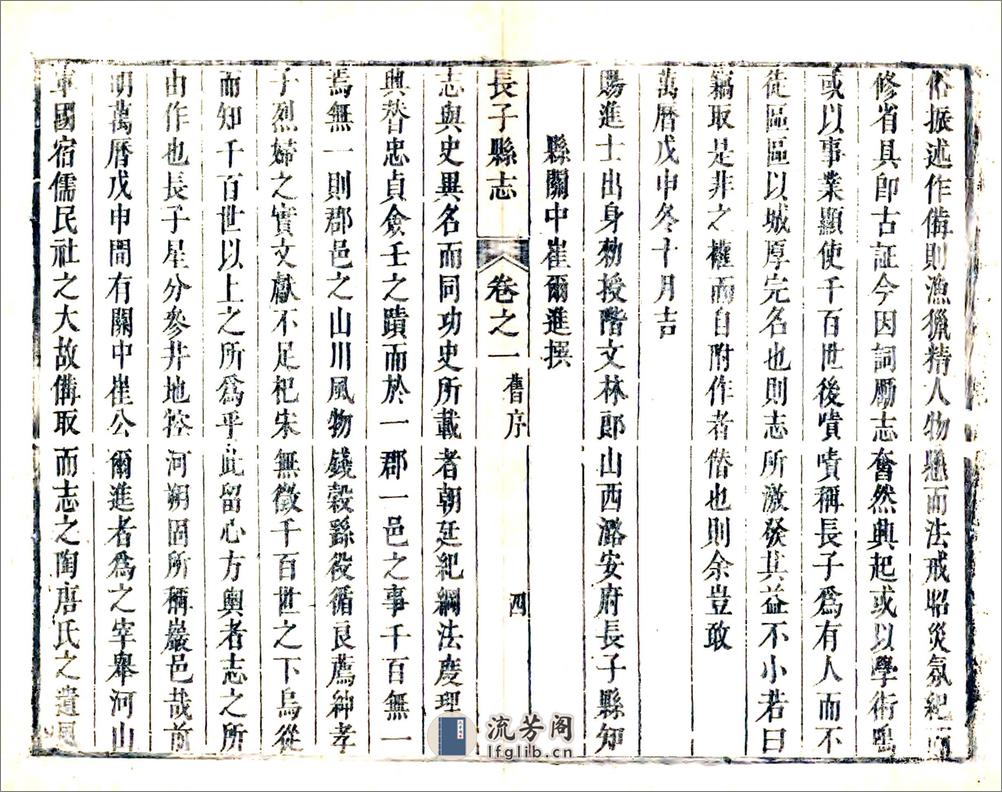 俗振述作備則漁獵精人物懸而法戒昭災氛紀而
修省具卽古証今因詞勵志奮然興起或以學術鳴
或以事業顯使千百世後嘖嘖稱長子為有人而不
徒區區以城厚完名也則志所激發其益不小若曰
竊取是非之權而自附作者僭也則余豈敢
萬曆戊申冬十月吉
賜進士出身勑授階文林郎山西潞安府長子縣知
縣關中崔爾進撰
長子縣志 卷之一 舊序 四
志與史異名而同功史所載者朝廷紀綱法度理
興替忠貞僉壬之蹟而於一郡一邑之事千百無一
焉無一則郡邑之山川風物錢穀繇役循良薦紳孝
子烈婦之實文獻不足杞宋無徵千百世之下烏從
而知千百世以上之所為乎此留心方輿者志之所
由作也長子星分參井地控河朔固所稱巖邑哉前
明萬曆戊申間有關中崔公爾進者為之宰舉河山
軍國宿儒民社之大故備取而志之陶唐氏之遺風
流芳阁
lfglib.cn